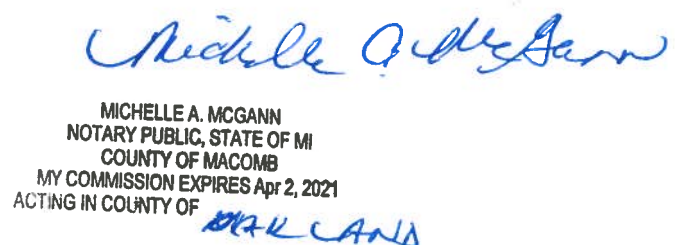 Michelle A. McGann
MICHELLE A. MCGANN
NOTARY PUBLIC, STATE OF MI
COUNTY OF MACOMB
MY COMMISSION EXPIRES Apr 2, 2021
ACTING IN COUNTY OF OAKLAND